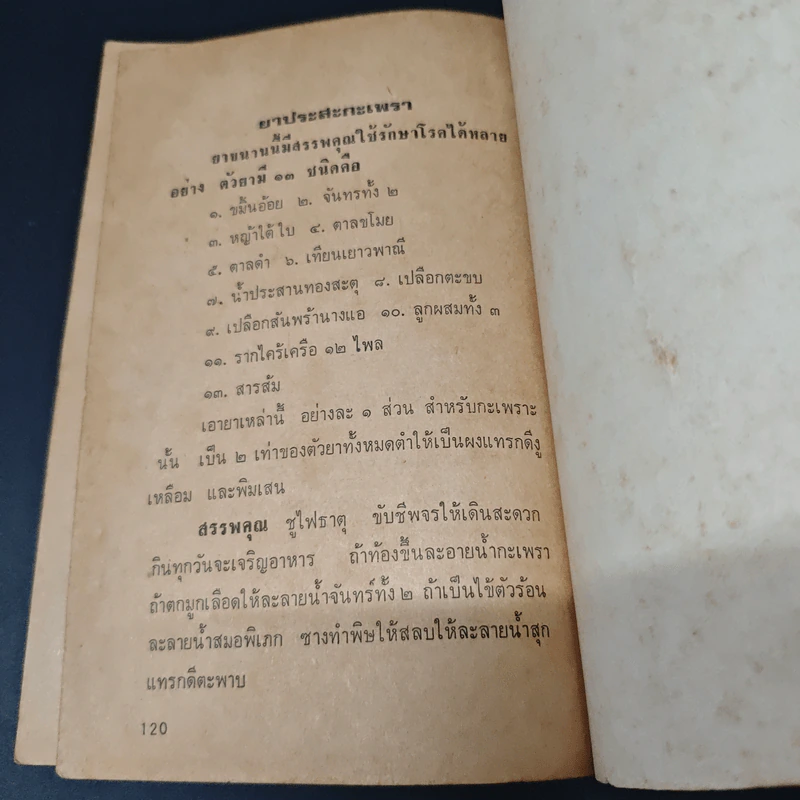 ยาประสะกะเพรา
ยาขนานนี้มีสรรพคุณใช้รักษาโรคได้หลาย
อย่าง ตัวยามี ๑๓ ชนิดคือ
๑. ขมิ้นอ้อย ๒. จันทรทั้ง ๒
๓. หญ้าใต้ใบ ๔. ตาลขโมย
๕. ตาลดำ ๖. เทียนเยาวพาณี
๗. น้ำประสานทองสะตุ ๘. เปลือกตะขบ
๙. เปลือกสันพร้านางแอ ๑๐. ลูกผสมทั้ง ๓
๑๑. รากไคร้เครือ ๑๒ ไพล
๑๓. สารส้ม
เอายาเหล่านี้ อย่างละ ๑ ส่วน สำหรับกะเพราะ
นั้น เป็น ๒ เท่าของตัวยาทั้งหมดตำให้เป็นผงแทรกดีงู
เหลือม และพิมเสน
สรรพคุณ ชูไฟธาตุ ขับชีพจรให้เดินสะดวก
กินทุกวันจะเจริญอาหาร ถ้าท้องขึ้นละอายน้ำกะเพรา
ถ้าตกมูกเลือดให้ละลายน้ำจันทร์ทั้ง ๒ ถ้าเป็นไข้ตัวร้อน
ละลายน้ำสมอพิเภก ซางทำพิษให้สลบให้ละลายน้ำสุก
แทรกดีตะพาบ
120